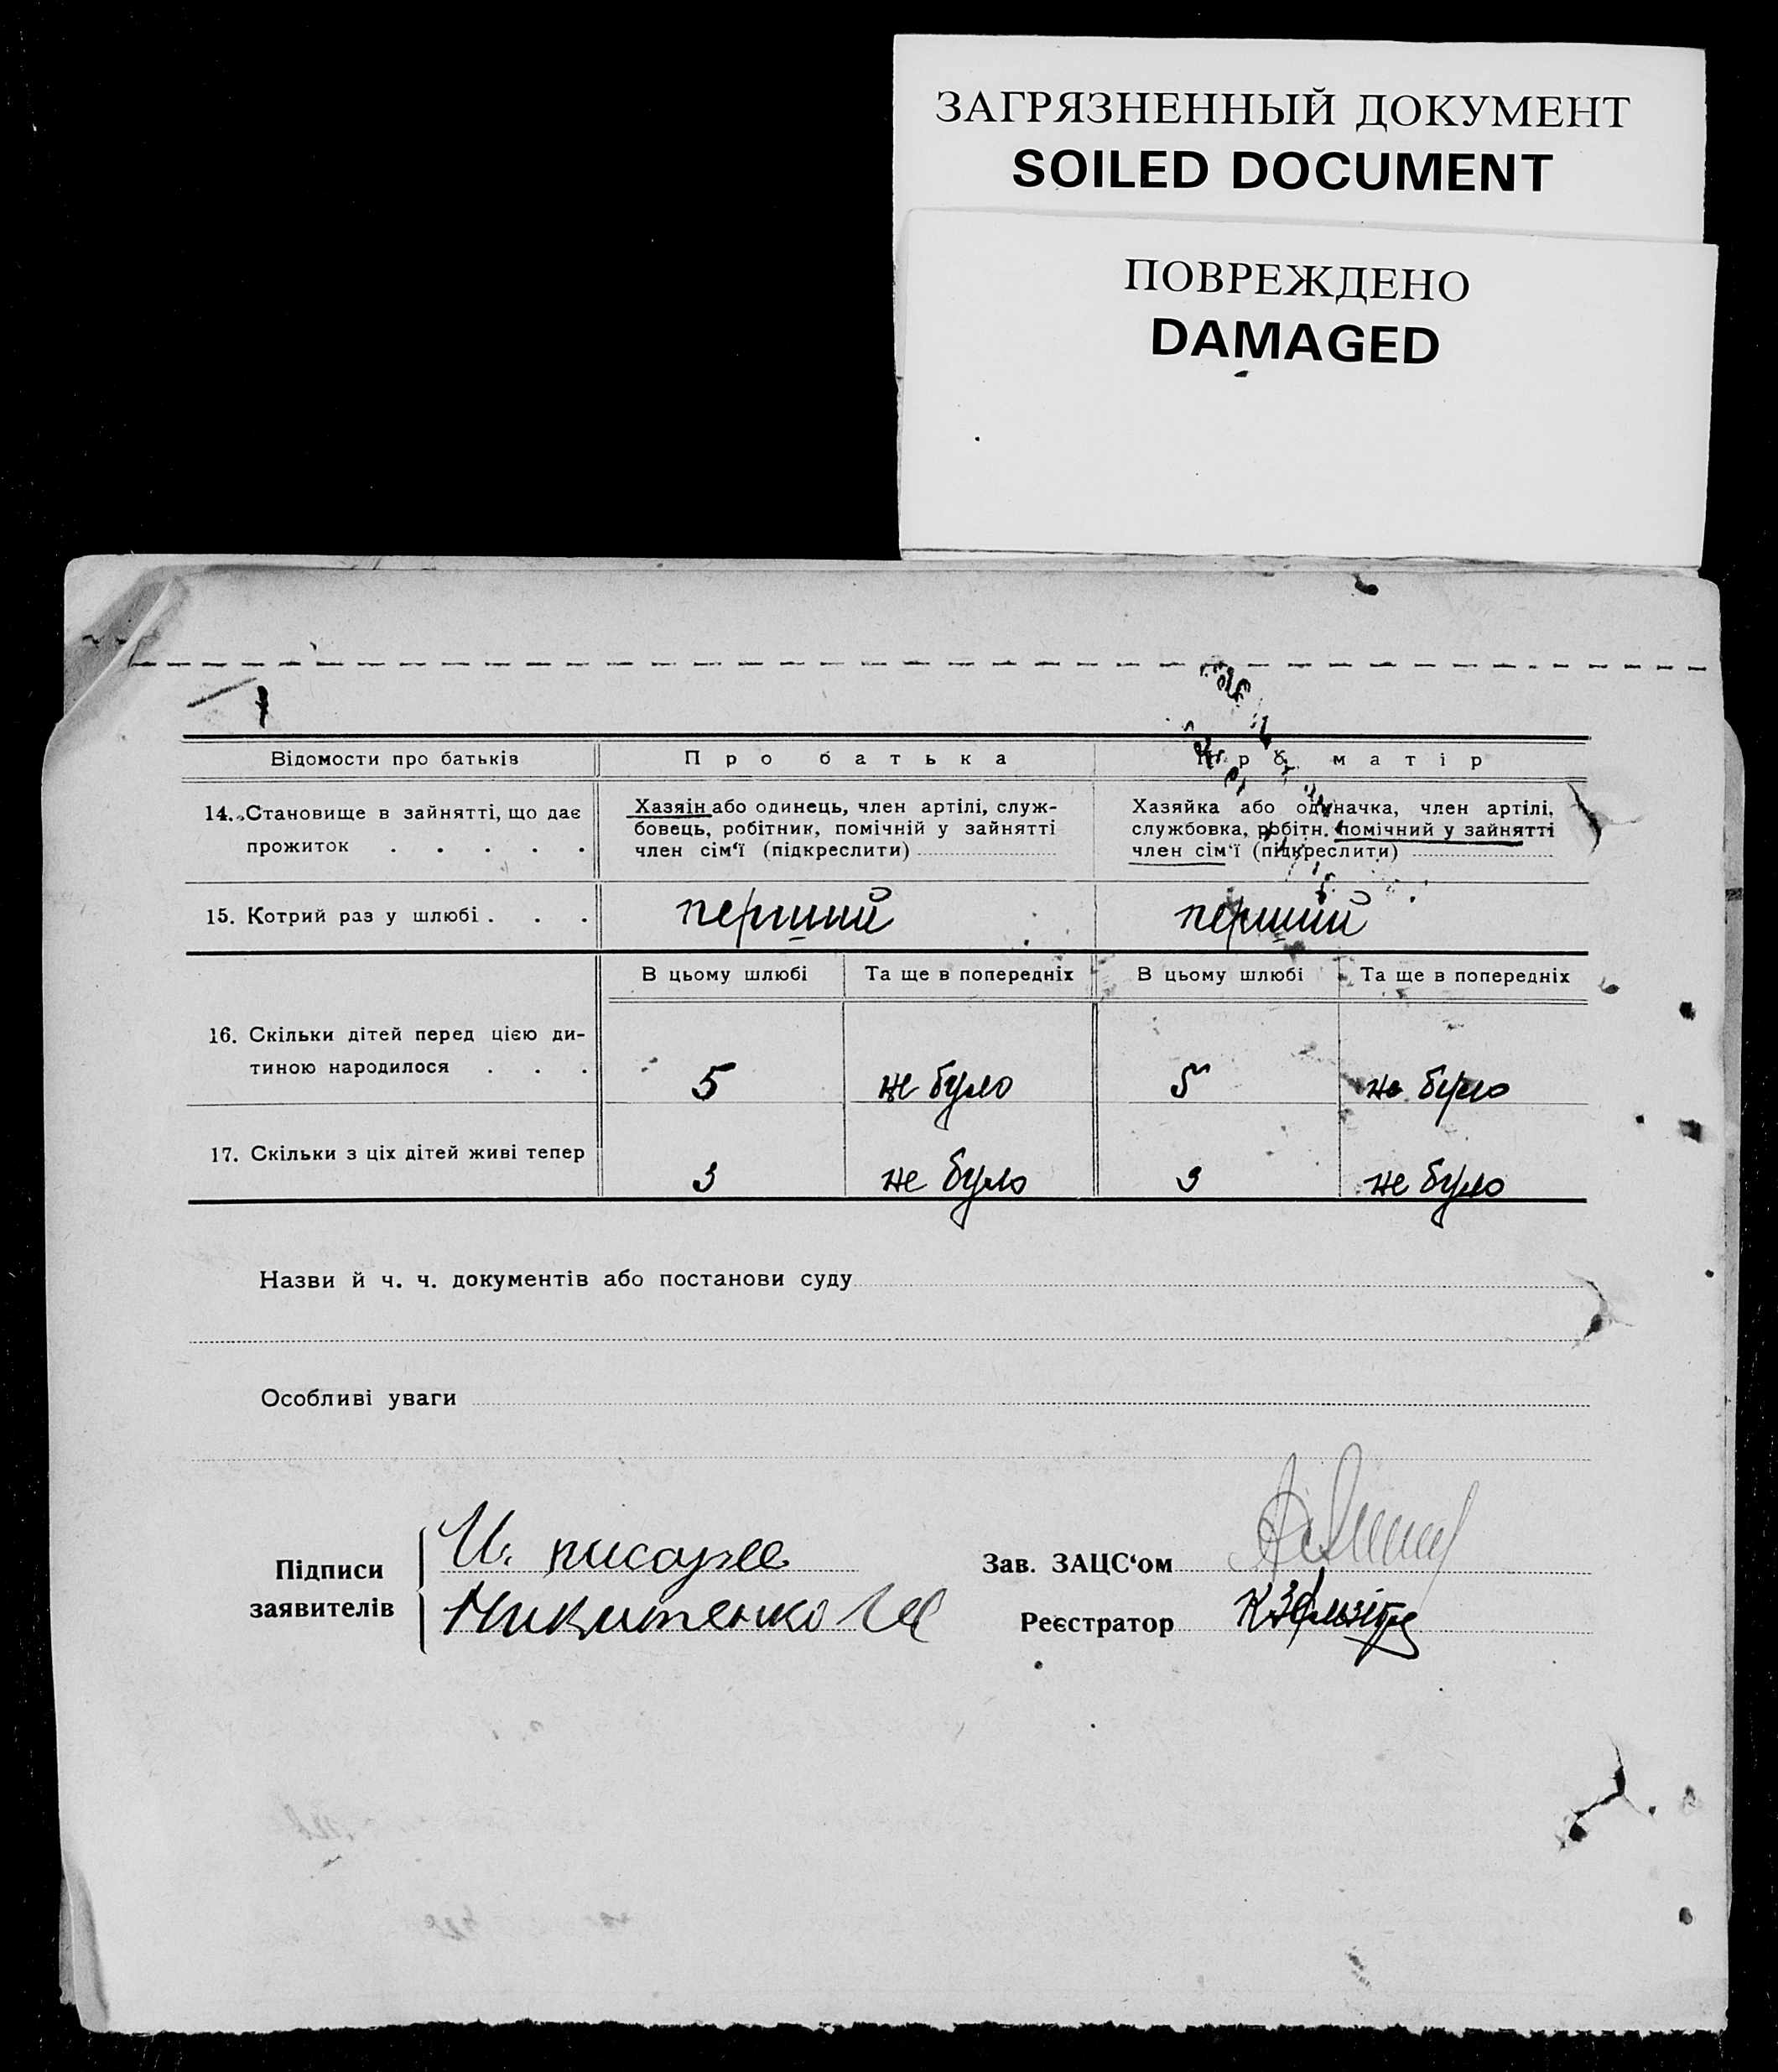 ЗАГРЯЗНЕННЫЙ ДОКУМЕНТ
SOILED DOCUMENT
ПОВРЕЖДЕНО
DAMAGED
Відомости про батьків Про батька Про матір
14. Становище в зайнятті, що дає прожиток . . . . .
Хазяін або одинець, член артілі, служ-
бовець, робітник, помічній у зайнятті
член сім‘ї (підкреслити)
Хазяйка або одиначка, член артілі,
службовка, робітн. помічний у зайнятті
член сім‘ї (підкреслити)
15. Котрий раз у шлюбі . . . перший перший
В цьому шлюбі Та ще в попередніх В цьому шлюбі Та ще в попередніх
16. Скільки дітей перед цією ди-
тиною народилося . . . 5 не було 5 не було
17. Скільки з ціх дітей живі тепер 3 не було 3 не було
Назви й ч. ч. документів або постанови суду
Особливі уваги
Підписи
заявителів
И.
Никитенко
Зав. ЗАЦС‘ом
Реєстратор